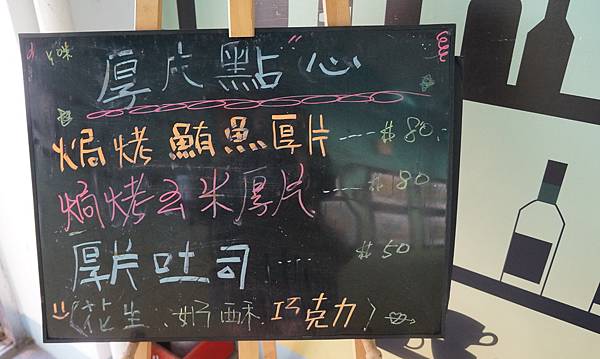 厚片點心
焗烤鮪魚厚片----$80.-
焗烤玉米厚片----$80
厚片吐司....$50
(花生.奶酥.巧克力)